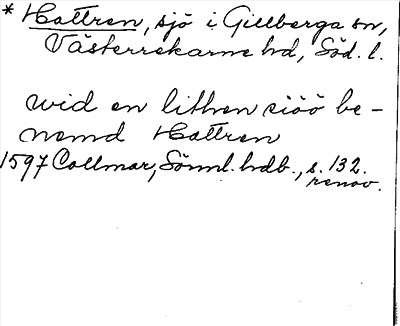 * Hattren, sjö i Gillberga sn,
Västerrekarne hd, Söd. l.
wid en lithen siöö be-
nemd Hattren
1597 Collmar, Sörml. hdb., s. 132.
renov.